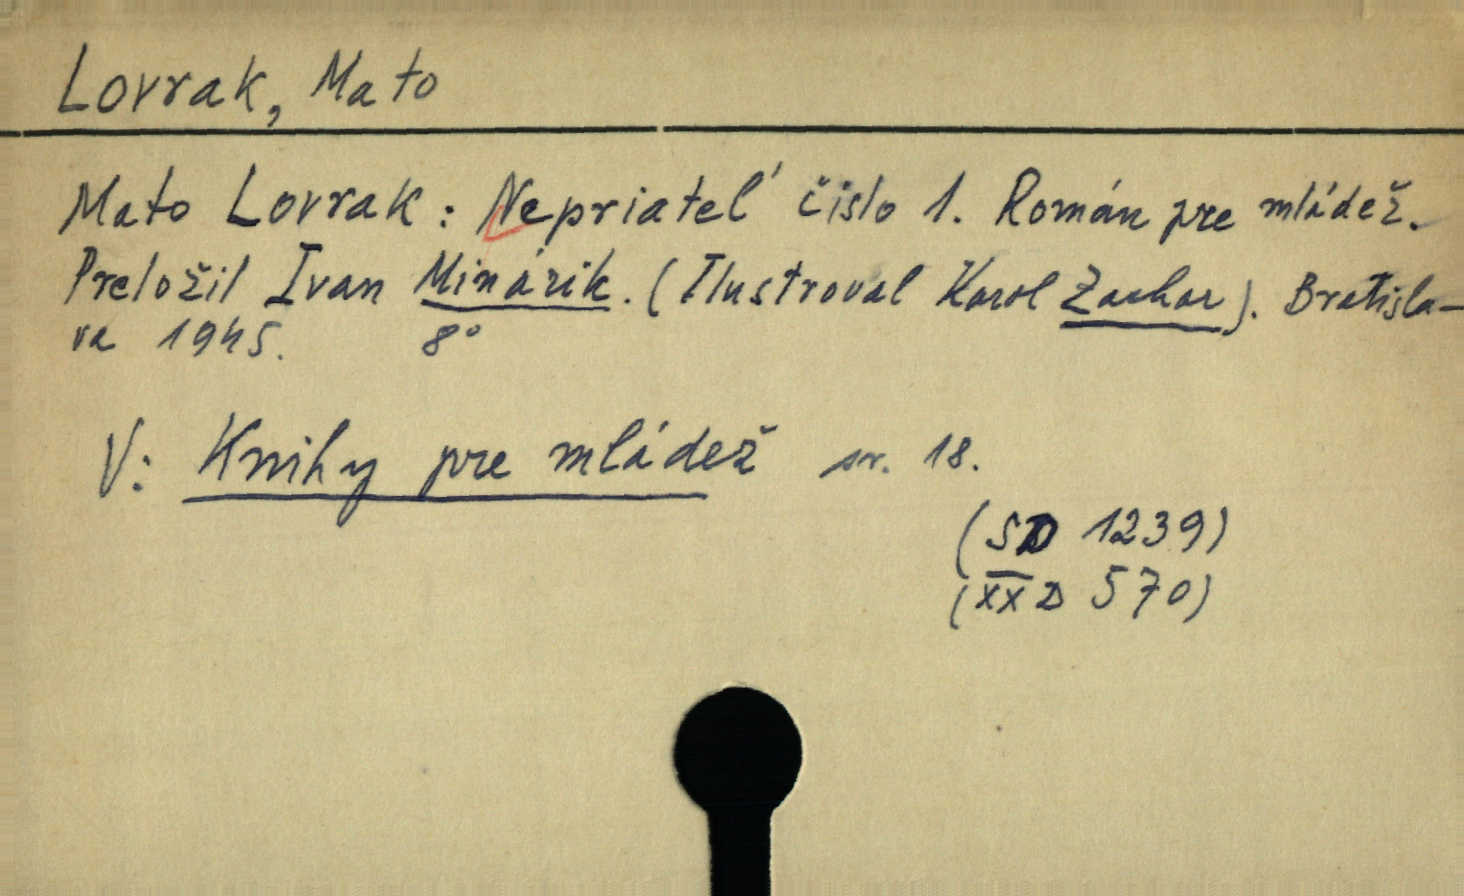 Lovrak, Mato
Mato Lovrak: Nepriateľ číslo 1. Román pre mládež.
Preložil Ivan Minárik. (Ilustroval Karol Zachar). Bratisla-
va 1945. 8°
V: Knihy pre mládež sv. 18.
(SD 1239)
(XXD 570)